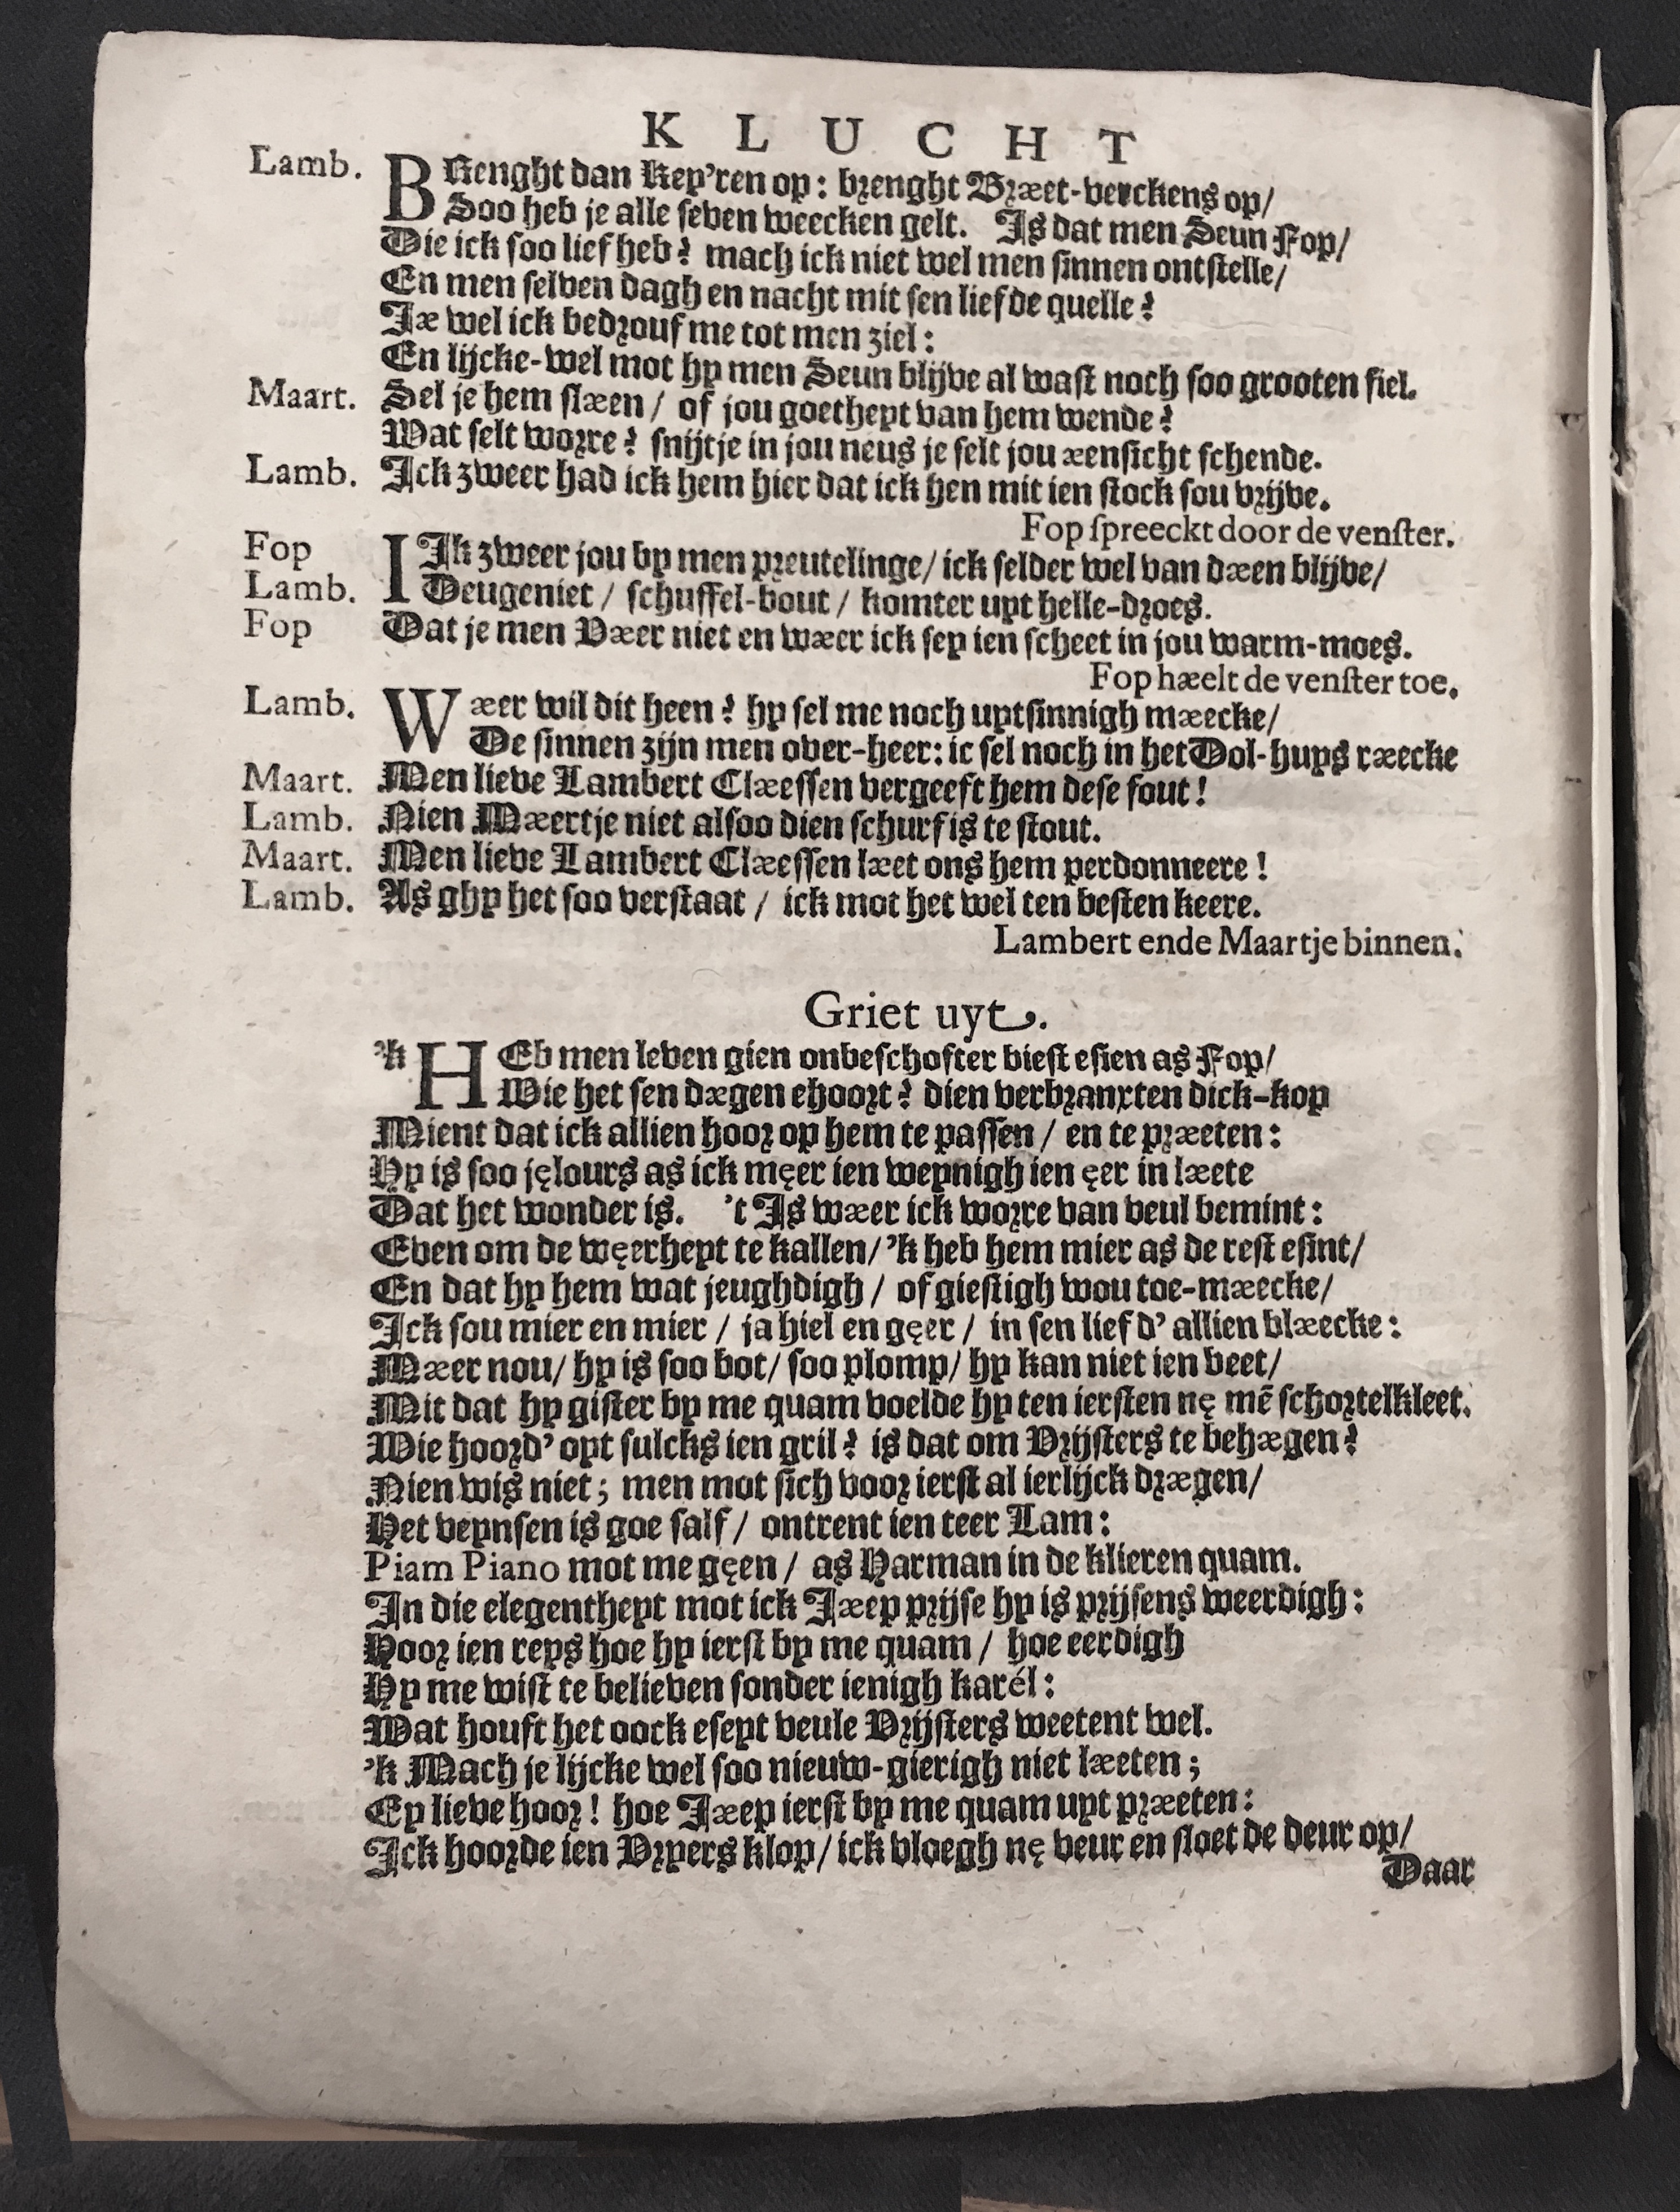 KLUCHT
Lamb. BRenght dan Key'ren op: brenght Bræet-verckens op/
Soo heb je alle seven weecken gelt. Is dat men Seun Fop/
Die ick soo lief heb? mach ick niet wel men sinnen ontstelle/
En men selven dagh en nacht mit sen liefde quelle?
Jæ wel ick bedrouf me tot men ziel:
En lijcke-wel mot hy men Seun blijve al wast noch soo grooten fiel.
Maart. Sel je hem slæen / of jou goetheyt van hem wende?
Wat selt worre? snijtje in jou neus je selt jou æensicht schende.
Lamb. Ick zweer had ick hem hier dat ick hen mit ien stock sou vrijve.
Fop spreeckt door de venster.
Fop IJk zweer jou by men preutelinge/ ick selder wel van dæen blijve/
Lamb. Deugeniet / schuffel-bout / komter uyt helle-droes.
Fop Dat je men Væer niet en wæer ick sey ien scheet in jou warm-moes.
Fop hæelt de venster toe.
Lamb. Wæer wil dit heen? hy sel me noch uytsinnigh mæecke/
De sinnen zijn men over-heer: ic sel noch in het Dol-huys ræecke
Maart. Men lieve Lambert Clæessen vergeeft hem dese fout!
Lamb. Nien Mæertje niet alsoo dien schurf is te stout.
Maart. Men lieve Lambert Clæessen læet ons hem perdonneere!
Lamb. As ghy het soo verstaat / ick mot het wel ten besten keere.
Lambert ende Maartje binnen.
Griet uyt.
'k HEb men leven gien onbeschofter biest esien as Fop/
Wie het sen dægen ehoort? dien verbranxten dick-kop
Mient dat ick allien hoor op hem te passen / en te præeten:
Hy is soo jęlours as ick męer ien weynigh ien ęer in læete
Dat het wonder is. 't Is wæer ick worre van veul bemint:
Even om de węerheyt te kallen/ 'k heb hem mier as de rest esint/
En dat hy hem wat jeughdigh / of giestigh wou toe-mæecke/
Ick sou mier en mier / ja hiel en gęer / in sen lief d' allien blæecke:
Mæer nou/ hy is soo bot/ soo plomp/ hy kan niet ien beet/
Mit dat hy gister by me quam voelde hy ten iersten nę mē schortelkleet.
Wie hoord' oyt sulcks ien gril? is dat om Vrijsters te behægen?
Nien wis niet; men mot sich voor ierst al ierlijck drægen/
Het veynsen is goe salf / ontrent ien teer Lam:
Piam Piano mot me gęen / as Harman in de klieren quam.
In die elegentheyt mot ick Jæep prijse hy is prijsens weerdigh:
Hoor ien reys hoe hy ierst by me quam / hoe eerdigh
Hy me wist te believen sonder ienigh karél:
Wat houft het oock eseyt veule Vrijsters weetent wel.
'k Mach je lijcke wel soo nieuw-gierigh niet læeten;
Ey lieve hoor! hoe Jæep ierst by me quam uyt præeten:
Ick hoorde ien Vryers klop/ ick vloegh nę veur en sloet de deur op/
Daar